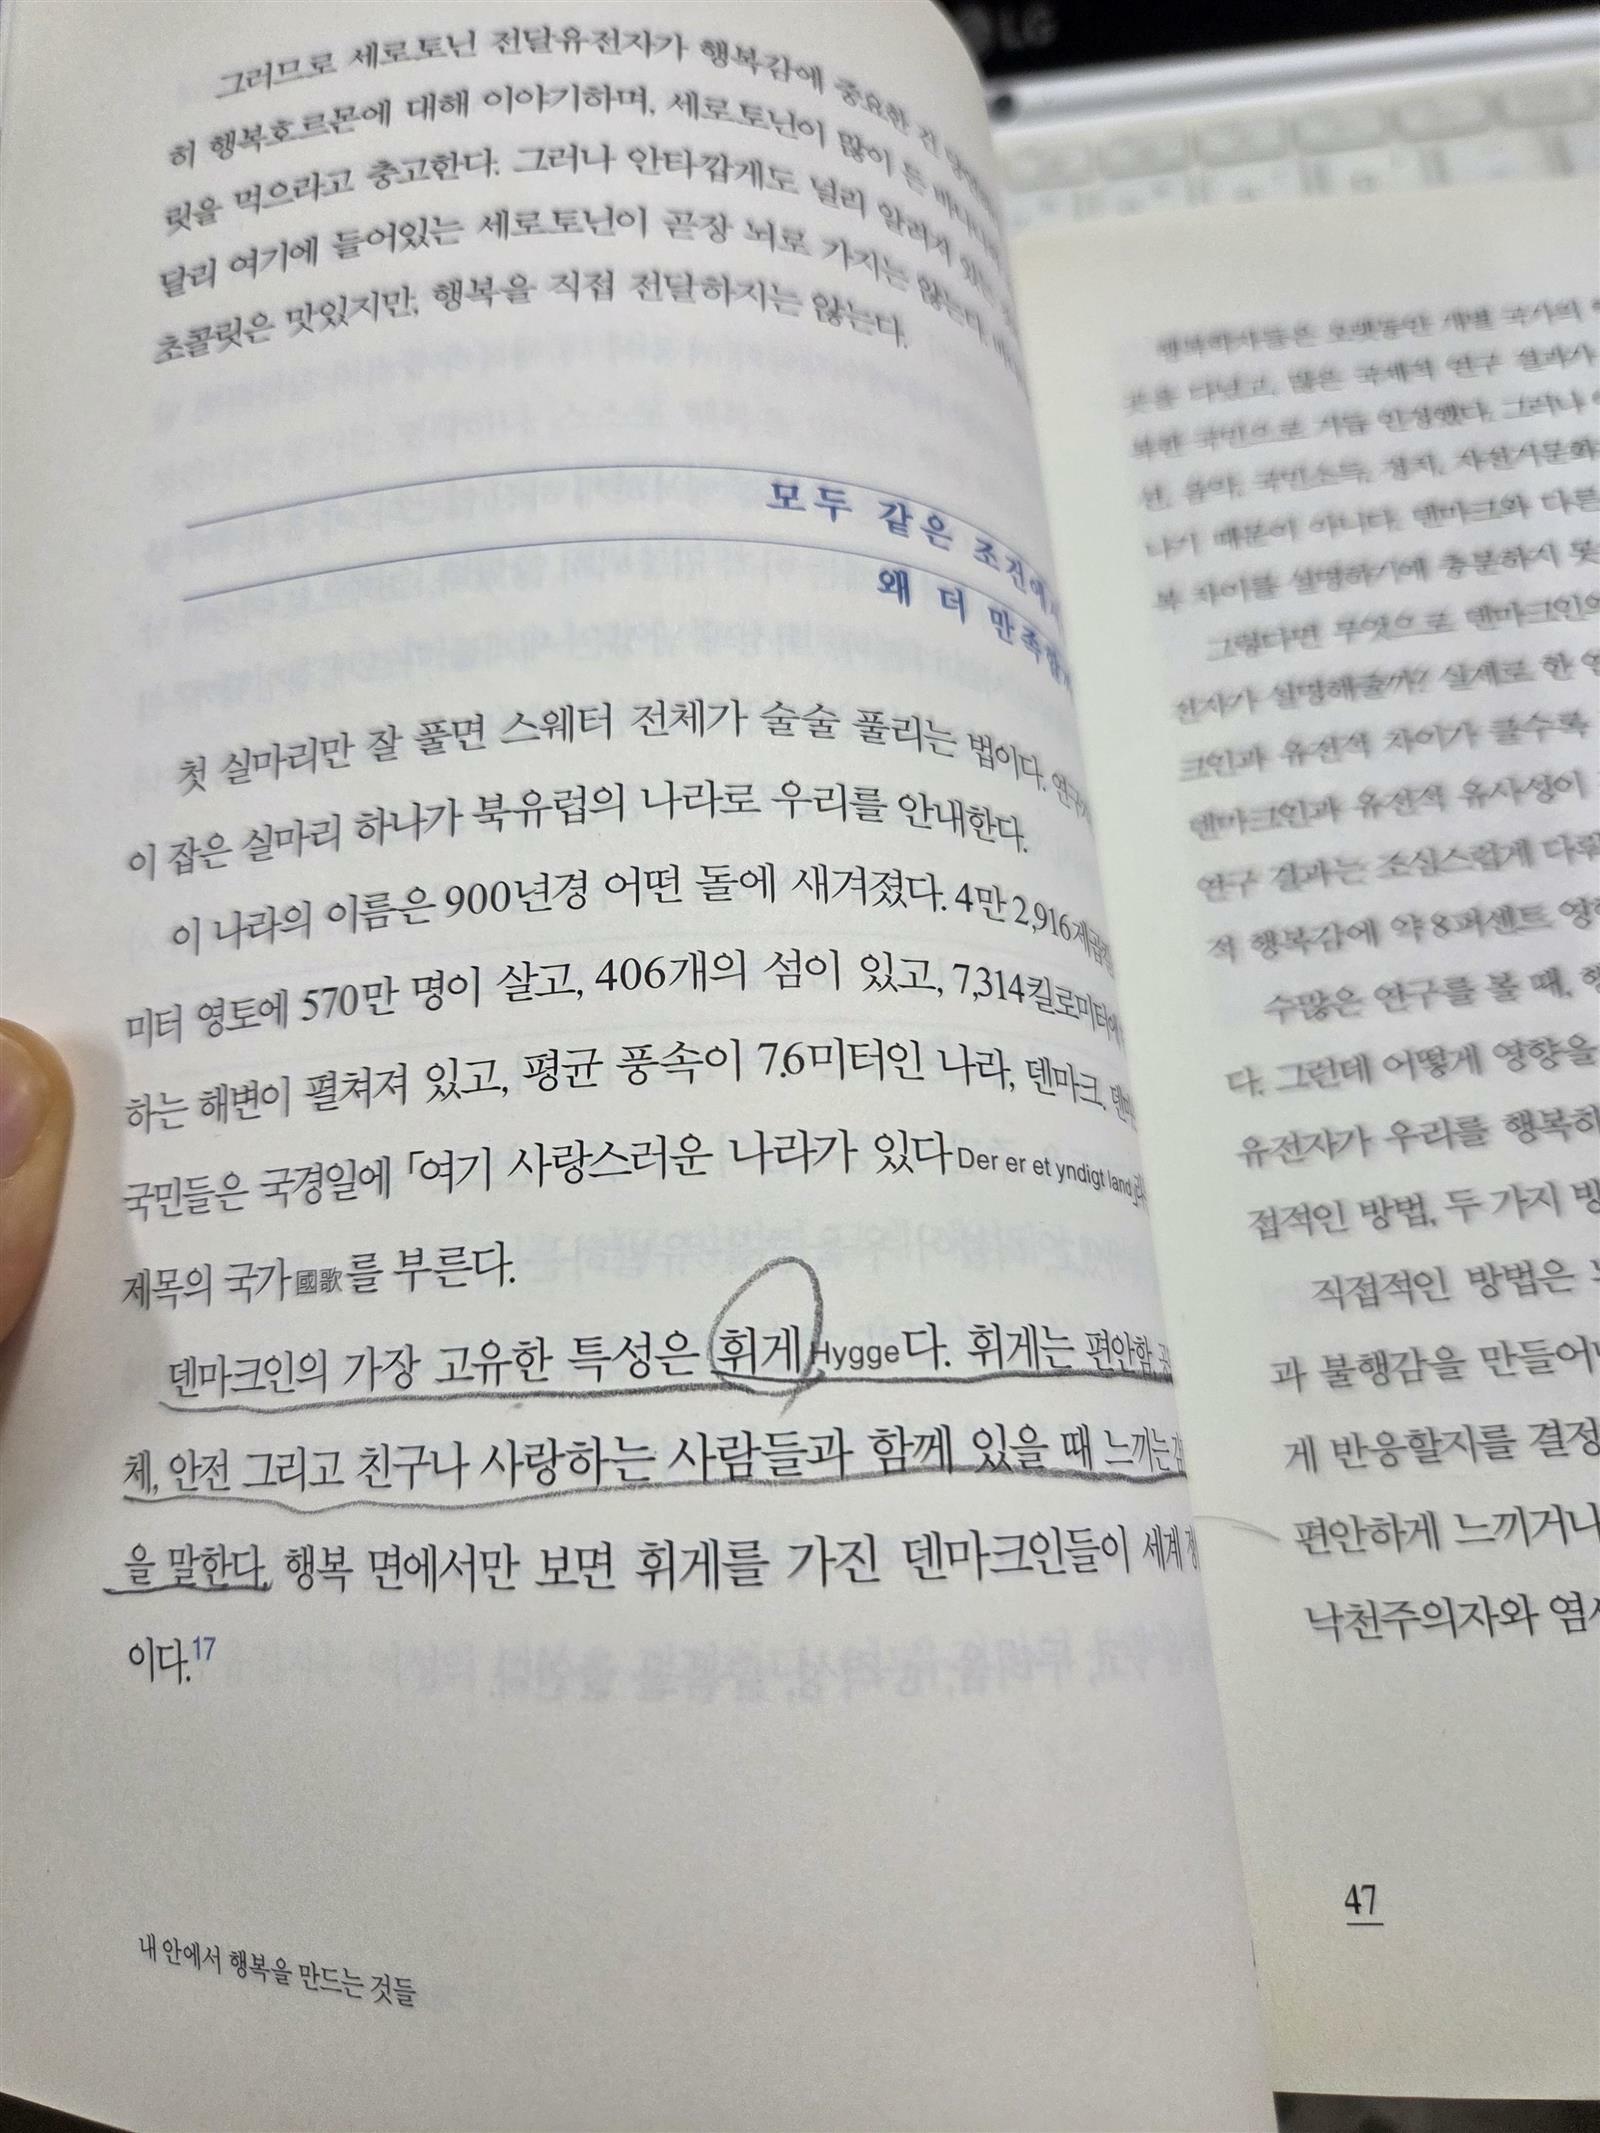 LG
그러므로 세로토닌 전달유전자가 행복감에 중요한
히 행복호르몬에 대해 이야기하며, 세로토닌이 많이 든
릿을 먹으라고 충고한다. 그러나 안타깝게도 널리 알려져
달리 여기에 들어있는 세로토닌이 곧장 뇌로 가지는 않는다.
초콜릿은 맛있지만, 행복을 직접 전달하지는 않는다.
모두 같은 조건에서
왜 더 만족할까
첫 실마리만 잘 풀면 스웨터 전체가 술술 풀리는 법이다.
이 잡은 실마리 하나가 북유럽의 나라로 우리를 안내한다.
이 나라의 이름은 900년경 어떤 돌에 새겨졌다. 4만 2,916제곱
미터 영토에 570만 명이 살고, 406개의 섬이 있고, 7,314킬로미터에
하는 해변이 펼쳐져 있고, 평균 풍속이 7.6미터인 나라, 덴마크.
국민들은 국경일에 「여기 사랑스러운 나라가 있다Der er et yndigt land」
제목의 국가國歌를 부른다.
덴마크인의 가장 고유한 특성은 휘게Hygge다. 휘게는 편안함,
체, 안전 그리고 친구나 사랑하는 사람들과 함께 있을 때 느끼는
을 말한다. 행복 면에서만 보면 휘게를 가진 덴마크인들이 세계
이다.17
내 안에서 행복을 만드는 것들
행복학자들은 오랫동안 개별 국가의
곳을 다녔고, 많은 국제적 연구 결과가
복한 국민으로 거듭 인정했다. 그러나
언, 음악, 국민소득, 정치, 자전거문화
나기 때문이 아니다. 덴마크와 다른
복 차이를 설명하기에 충분하지 못
그렇다면 무엇으로 덴마크인의
전자가 설명해줄까? 실제로 한
크인과 유전적 차이가 클수록
덴마크인과 유전적 유사성이
연구 결과는 조심스럽게 다뤄
적 행복감에 약 8퍼센트
수많은 연구를 볼 때,
다. 그런데 어떻게 영향을
유전자가 우리를 행복하
접적인 방법, 두 가지
직접적인 방법은
과 불행감을 만들어
게 반응할지를 결정
편안하게 느끼거나
낙천주의자와 염세
47